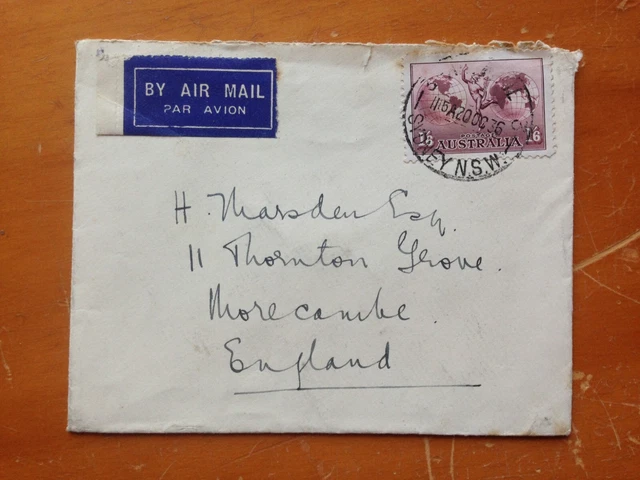 BY AIR MAIL
PAR AVION
1115A20OC36
SYDNEY N.S.W.
POSTAGE
1/6 AUSTRALIA 1/6
H. Marsden Esq.
11 Thornton Grove.
Morecambe.
England